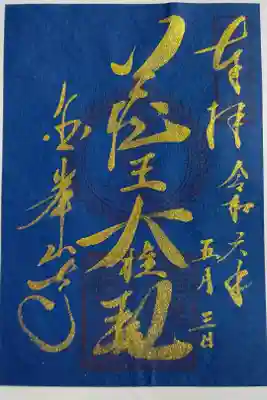 奉拝 令和六年
五月三日
蔵王大権現
金峯山寺